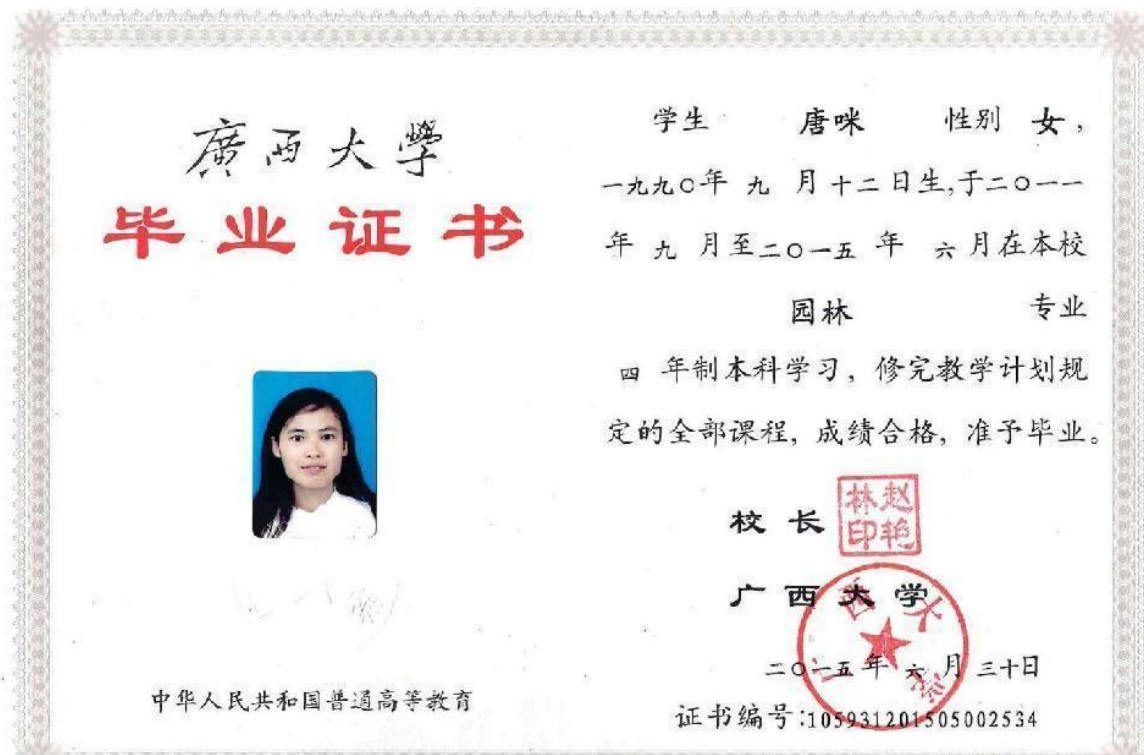 廣西大學
毕业证书
中华人民共和国普通高等教育
学生 唐咪 性别 女,
一九九〇年 九 月十二日生,于二〇一一
年 九 月至二〇一五 年 六月在本校
园林 专业
四 年制本科学习, 修完教学计划规
定的全部课程, 成绩合格, 准予毕业。
校 长
赵艳林印
广 西 大 学
广西大学
二〇一五年 六 月 三十日
证书编号:105931201505002534